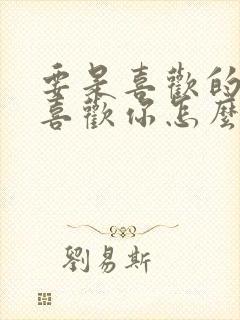 要是喜歡的
喜歡你怎麼
劉易斯